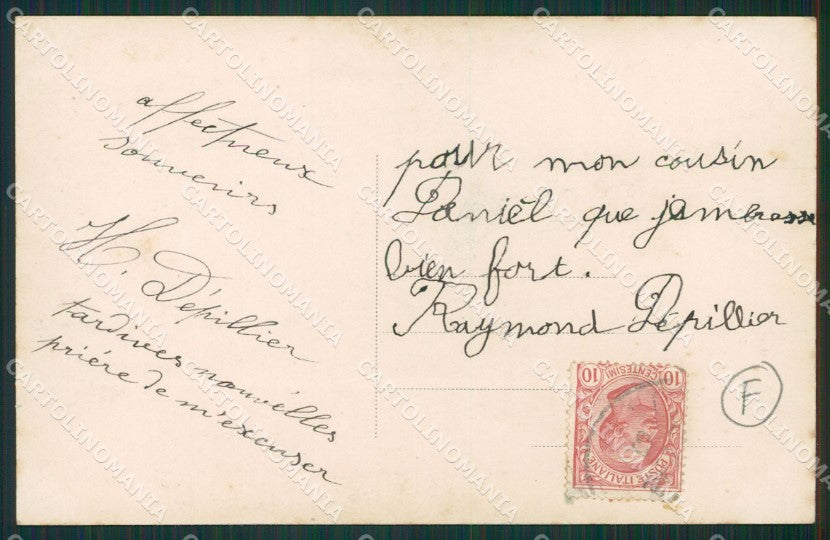 affectueux
souvenirs
H. Dépillier
tardives nouvelles
prière de m'excuser
pour mon cousin
Daniel que jembrasse
bien fort.
Raymond Dépillier
10 CENTESIMI 10
POSTE ITALIANE
F
CARTOLINOMANIA